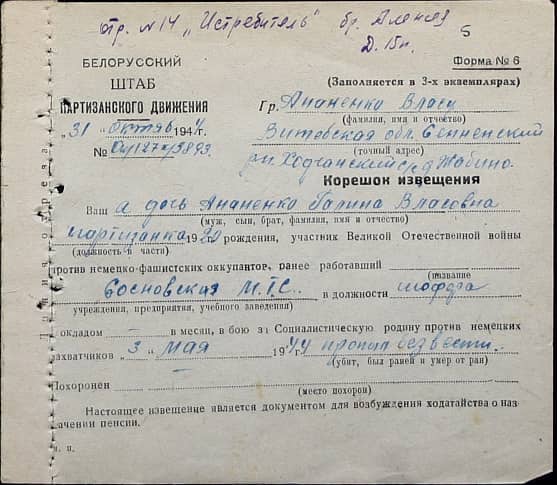 отр. №14 „Истребитель" бр. Алексея
Д. 15п. 5
БЕЛОРУССКИЙ
ШТАБ
ПАРТИЗАНСКОГО ДВИЖЕНИЯ
„31" октяб 1944г.
№
Форма № 6
(Заполняется в 3-х экземплярах)
Гр. Ананенко Власу
(фамилия, имя и отчество)
Витебская обл. Сенненский
(точный адрес)
р-н Ходчанский с/с д Жабино
Корешок извещения
Ваш а дочь Ананенко Галина Власовна
(муж, сын, брат, фамилия, имя и отчество)
партизанка 1920 рождения, участник Великой Отечественной войны
(должность в части)
против немецко-фашистских оккупантов, ранее работавший
(название
Сосновская М.Т.С. в должности шоффра
учреждения, предприятия, учебного заведения)
окладом — в месяц, в бою за Социалистическую родину против немецких
захватчиков „3" мая 1944 г. пропал без вести.
(убит, был ранен и умер от ран)
Похоронен
(место похорон)
Настоящее извещение является документом для возбуждения ходатайства о наз
ачении пенсии.
п.